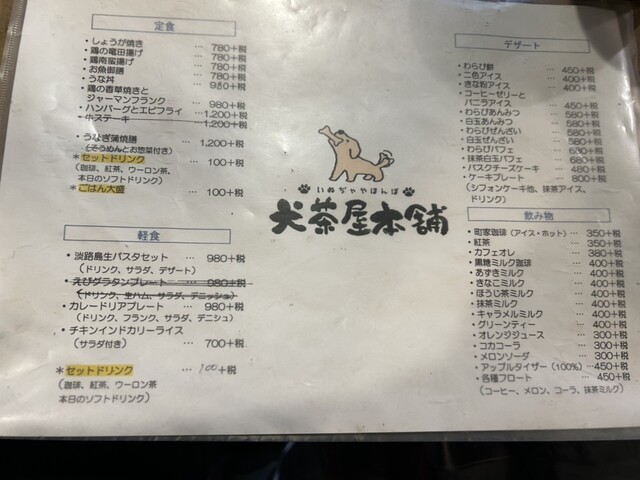 定食
・しょうが焼き … 780+税
・鶏の竜田揚げ … 780+税
・鶏南蛮揚げ … 780+税
・お魚御膳 … 780+税
・うな丼 … 980+税
・鶏の香草焼きと
ジャーマンフランク … 980+税
・ハンバーグとエビフライ … 1,200+税
・ホステーキ … 1,200+税
・うなぎ蒲焼膳 … 1,200+税
(そうめんとお惣菜付き)
*セットドリンク … 100+税
(珈琲、紅茶、ウーロン茶、
本日のソフトドリンク)
*ごはん大盛 … 100+税
軽食
・淡路島生パスタセット … 980+税
(ドリンク、サラダ、デザート)
・えびグラタンプレート … 980+税
(ドリンク、生ハム、サラダ、デニッシュ)
・カレードリアプレート … 980+税
(ドリンク、フランク、サラダ、デニシュ)
・チキンインドカリーライス
(サラダ付き) … 700+税
*セットドリンク … 100+税
(珈琲、紅茶、ウーロン茶
本日のソフトドリンク)
いぬぢゃやほんぽ
犬茶屋本舗
デザート
・わらび餅 … 450+税
・二色アイス … 400+税
・きな粉アイス … 400+税
・コーヒーゼリーと
バニラアイス … 450+税
・わらびあんみつ … 580+税
・白玉あんみつ … 580+税
・わらびぜんざい … 580+税
・白玉ぜんざい … 580+税
・わらびパフェ … 680+税
・抹茶白玉パフェ … 680+税
・バスクチーズケーキ … 480+税
・ケーキプレート … 480+税
(シフォンケーキ他、抹茶アイス、
ドリンク)
飲み物
・町家珈琲(アイス・ホット) … 350+税
・紅茶 … 350+税
・カフェオレ … 380+税
・黒糖ミルク珈琲 … 400+税
・あずきミルク … 400+税
・きなこミルク … 400+税
・ほうじ茶ミルク … 400+税
・抹茶ミルク … 400+税
・キャラメルミルク … 400+税
・グリーンティー … 400+税
・オレンジジュース … 300+税
・コカコーラ … 300+税
・メロンソーダ … 300+税
・アップルタイザー(100%) … 450+税
・各種フロート … 450+税
(コーヒー、メロン、コーラ、抹茶ミルク)